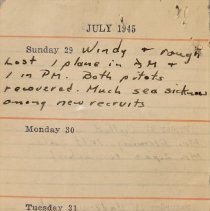 JULY 1945
Sunday 29 Windy & rough
Lost 1 plane in AM &
1 in PM. Both pilots
recovered. Much sea sickness
among new recruits
Monday 30
Tuesday 31